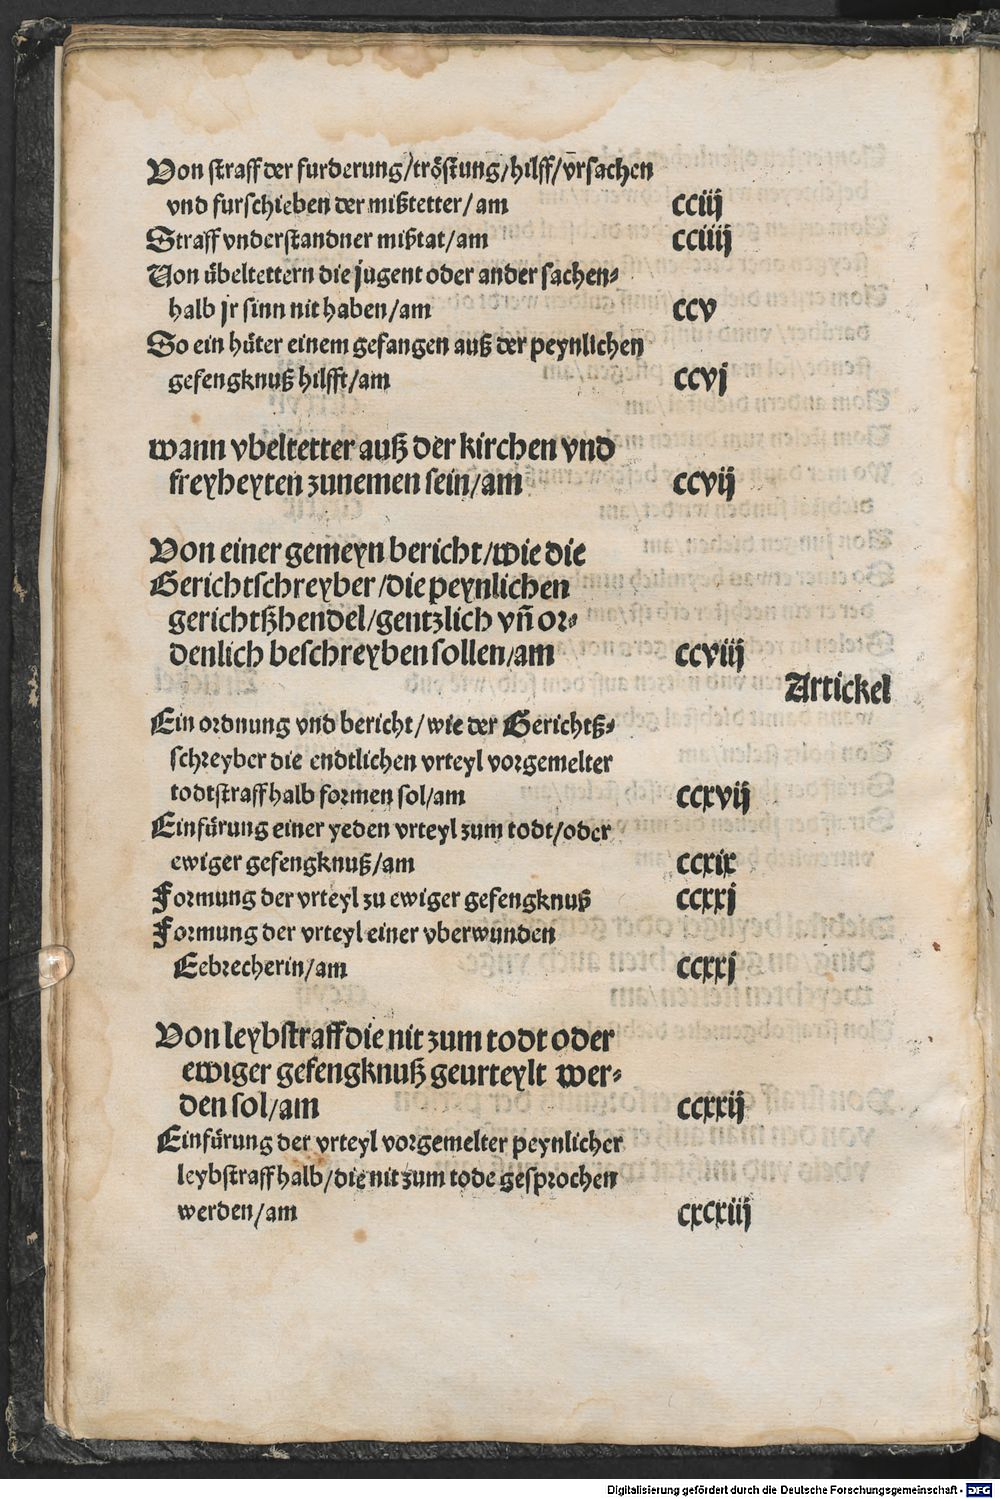 Von straff der furderung/tröstung/hilff/vr̄sachen
vnd furschieben der mißtetter/am cciij
Straff vnderstandner mißtat/am cciiij
Von übeltettern die jugent oder ander sachen-
halb jr sinn nit haben/am ccv
So ein hüter einem gefangen auß der peynlichen
gefengknuß hilfft/am ccvj
wann vbeltetter auß der kirchen vnd
freyheyten zunemen sein/am ccvij
Von einer gemeyn bericht/wie die
Gerichtschreyber/die peynlichen
gerichtßhendel/gentzlich vn̄ or-
denlich beschreyben sollen/am ccviij
Artickel
Ein ordnung vnd bericht/wie der Gerichtß-
schreyber die endtlichen vrteyl vorgemelter
todtstraff halb formen sol/am ccxvij
Einfürung einer yeden vrteyl zum todt/oder
ewiger gefengknuß/am ccxix
Formung der vrteyl zu ewiger gefengknuß ccxxj
Formung der vrteyl einer vberwunden
Eebrecherin/am ccxxj
Von leybstraff die nit zum todt oder
ewiger gefengknuß geurteylt wer-
den sol/am ccxxij
Einfürung der vrteyl vorgemelter peynlicher
leybstraff halb/die nit zum tode gesprochen
werden/am cxcxiij
Digitalisierung gefördert durch die Deutsche Forschungsgemeinschaft - DFG